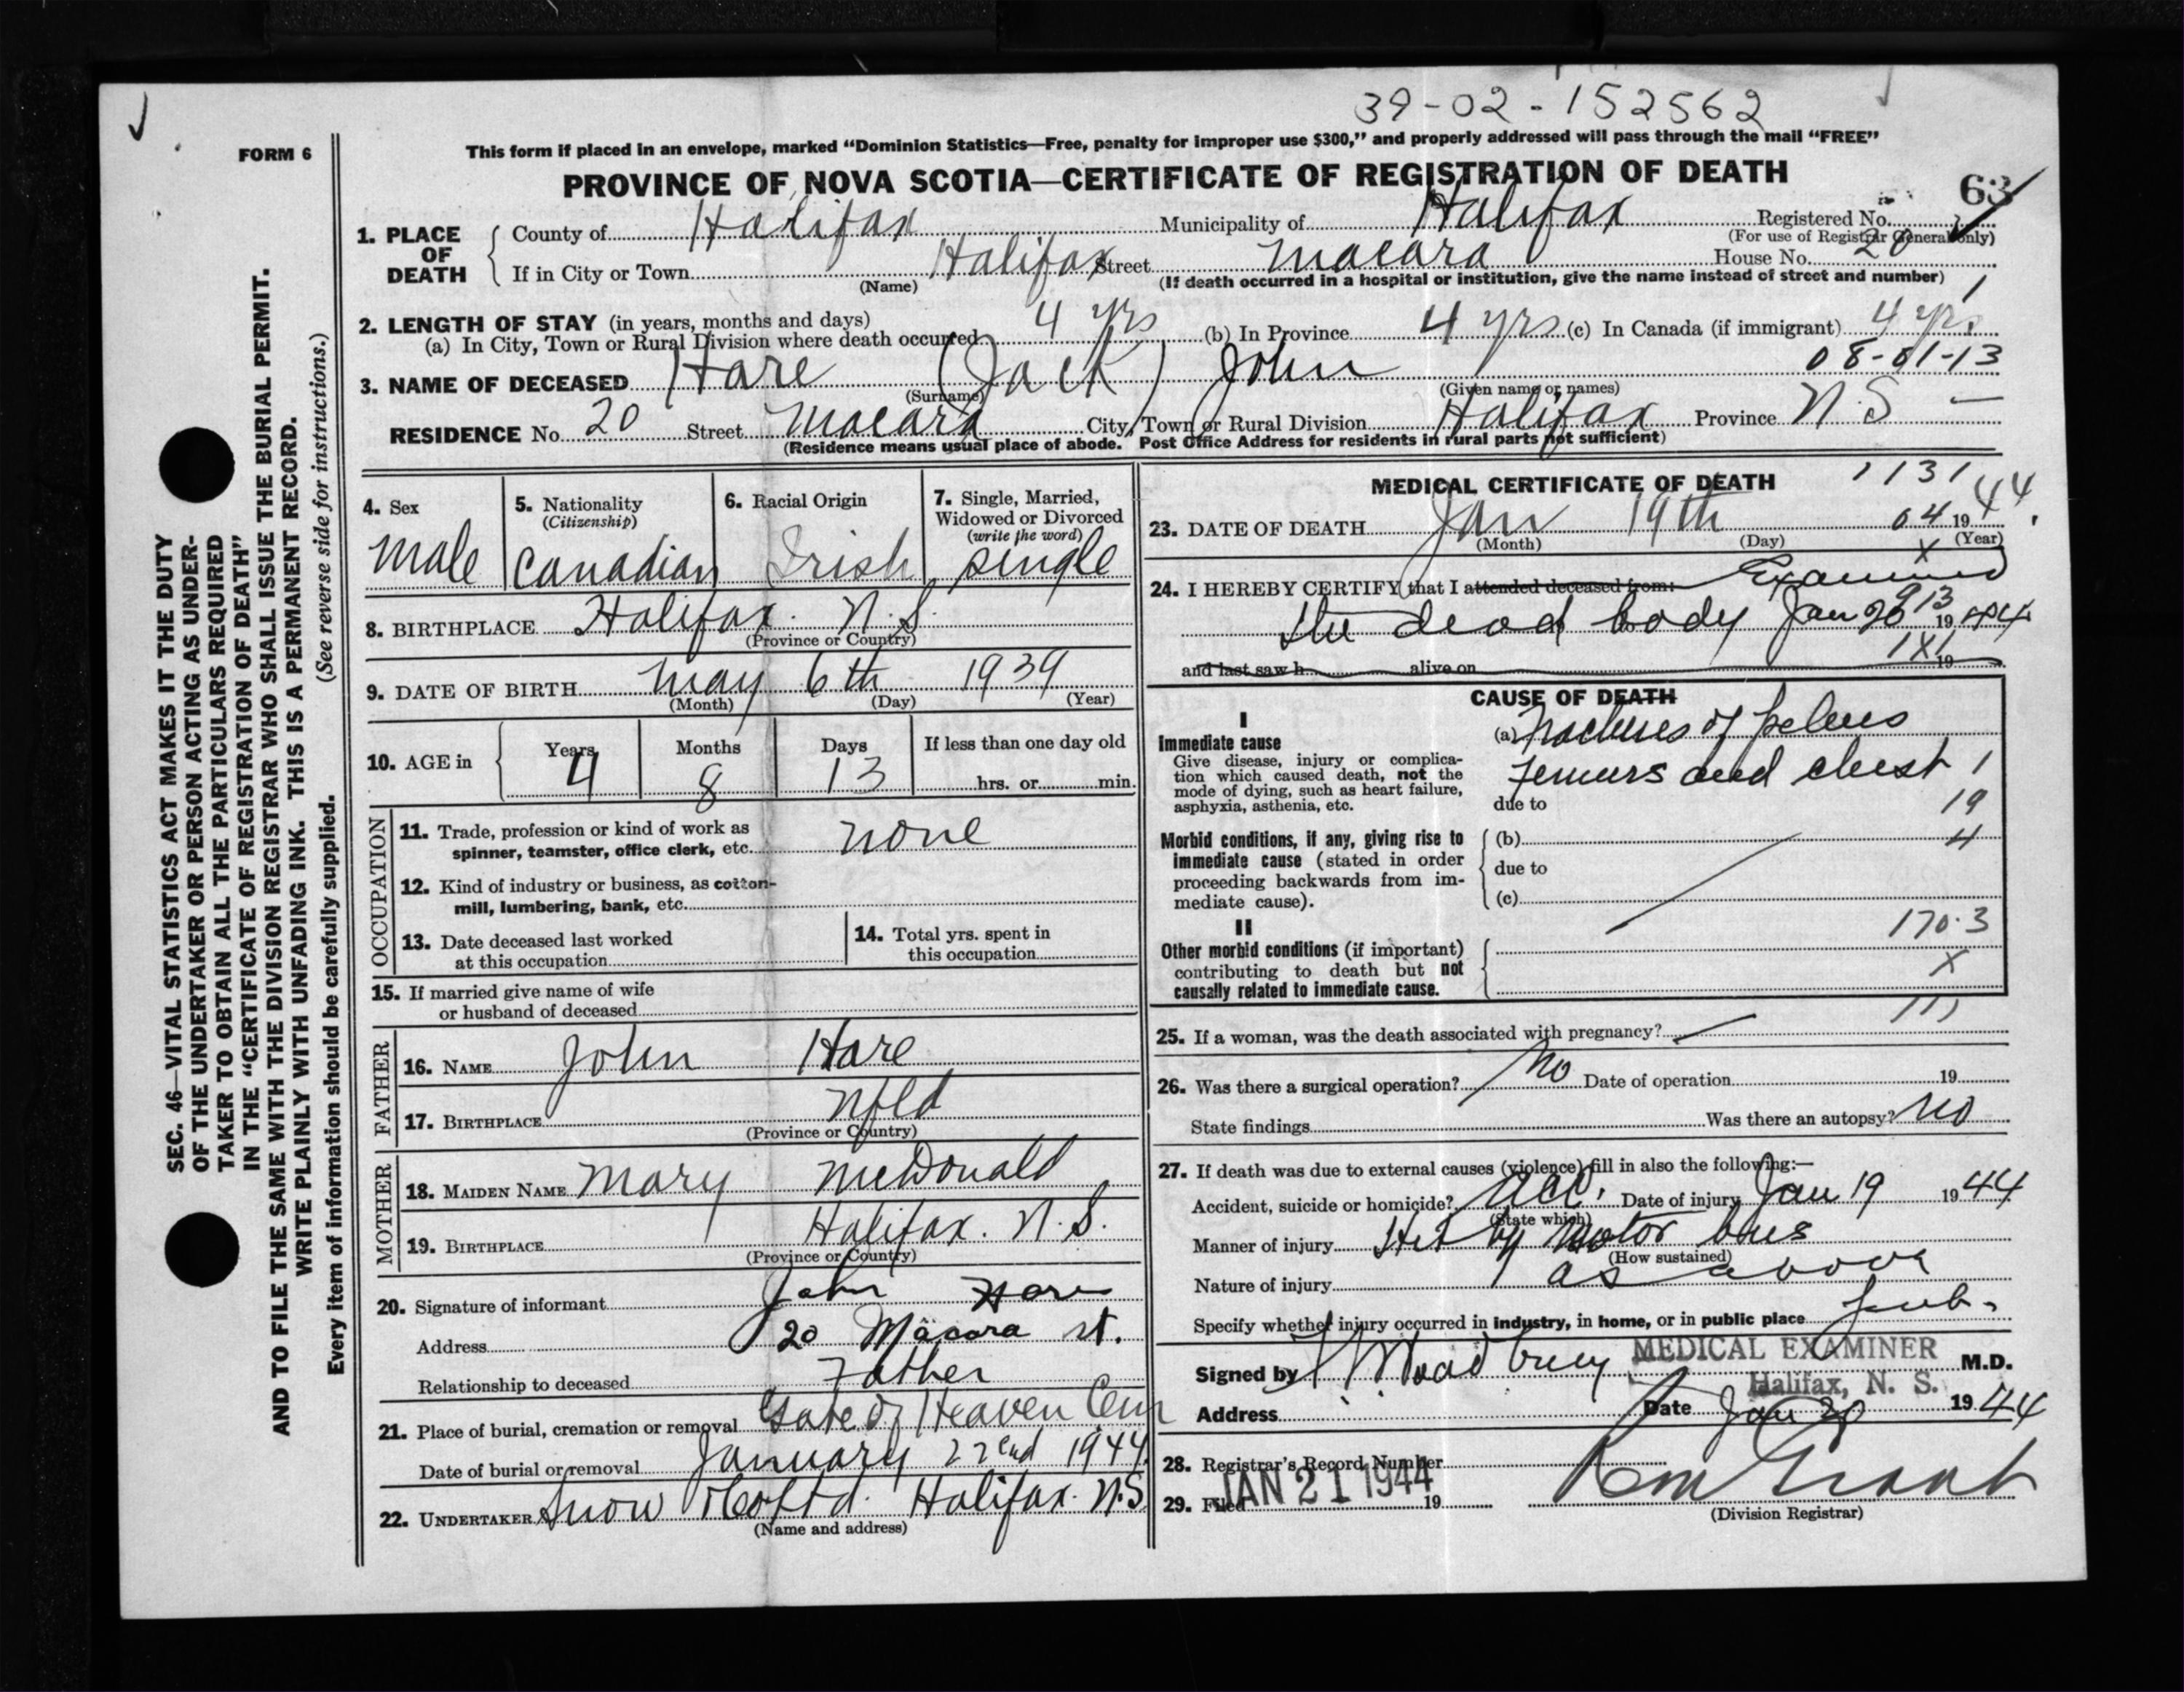 39-02-152562
FORM 6
This form if placed in an envelope, marked “Dominion Statistics—Free, penalty for improper use $300,” and properly addressed will pass through the mail “FREE”
PROVINCE OF NOVA SCOTIA—CERTIFICATE OF REGISTRATION OF DEATH
63
1. PLACE OF DEATH
County of Halifax Municipality of Halifax Registered No.
(For use of Registrar General only)
If in City or Town Halifax Street Macara House No. 20
(Name) (If death occurred in a hospital or institution, give the name instead of street and number)
2. LENGTH OF STAY (in years, months and days)
(a) In City, Town or Rural Division where death occurred 4 yrs (b) In Province 4 yrs (c) In Canada (if immigrant) 4 yrs
08-01-13
3. NAME OF DECEASED Hare (Jack) John
(Surname) (Given name or names)
RESIDENCE No. 20 Street Macara City, Town or Rural Division Halifax Province N.S
(Residence means usual place of abode. Post Office Address for residents in rural parts not sufficient)
4. Sex
male
5. Nationality
(Citizenship)
Canadian
6. Racial Origin
Irish
7. Single, Married,
Widowed or Divorced
(write the word)
single
8. BIRTHPLACE Halifax. N.S.
(Province or Country)
9. DATE OF BIRTH May 6th 1939
(Month) (Day) (Year)
10. AGE in Years Months Days If less than one day old
4 8 13 hrs. or min.
OCCUPATION
11. Trade, profession or kind of work as
spinner, teamster, office clerk, etc. none
12. Kind of industry or business, as cotton-
mill, lumbering, bank, etc.
13. Date deceased last worked
at this occupation
14. Total yrs. spent in
this occupation
15. If married give name of wife
or husband of deceased
FATHER
16. NAME John Hare
17. BIRTHPLACE Nfld
(Province or Country)
MOTHER
18. MAIDEN NAME Mary McDonald
19. BIRTHPLACE Halifax. N.S.
(Province or Country)
20. Signature of informant John Hare
Address 20 Macara st.
Relationship to deceased Father
21. Place of burial, cremation or removal Gate of Heaven Cem
Date of burial or removal January 22nd 1944
22. UNDERTAKER Snow Halifax. N.S
(Name and address)
MEDICAL CERTIFICATE OF DEATH
1131
23. DATE OF DEATH Jan 19th 04 1944
(Month) (Day) (Year)
X
24. I HEREBY CERTIFY that I attended deceased from: Examined
913
the dead body Jan 20 1944
1X1
and last saw h alive on 19
CAUSE OF DEATH
I
Immediate cause
Give disease, injury or complica-
tion which caused death, not the
mode of dying, such as heart failure,
asphyxia, asthenia, etc.
(a) Fractures of pelvis
Femurs and chest 1
due to 19
Morbid conditions, if any, giving rise to
immediate cause (stated in order
proceeding backwards from im-
mediate cause).
(b) 4
due to
(c)
170.3
II
Other morbid conditions (if important)
contributing to death but not
causally related to immediate cause.
X
111
25. If a woman, was the death associated with pregnancy?
26. Was there a surgical operation? No Date of operation 19
State findings Was there an autopsy? No
27. If death was due to external causes (violence) fill in also the following:—
Accident, suicide or homicide? Acc. Date of injury Jan 19 1944
(State which)
Manner of injury Hit by Motor bus
(How sustained)
Nature of injury as above
Specify whether injury occurred in industry, in home, or in public place pub.
Signed by MEDICAL EXAMINER M.D.
Halifax, N. S.
Address Date Jan 20 1944
28. Registrar's Record Number
29. Filed JAN 21 1944 19
(Division Registrar)
SEC. 46—VITAL STATISTICS ACT MAKES IT THE DUTY
OF THE UNDERTAKER OR PERSON ACTING AS UNDER-
TAKER TO OBTAIN ALL THE PARTICULARS REQUIRED
IN THE “CERTIFICATE OF REGISTRATION OF DEATH”
AND TO FILE THE SAME WITH THE DIVISION REGISTRAR WHO SHALL ISSUE THE BURIAL PERMIT.
WRITE PLAINLY WITH UNFADING INK. THIS IS A PERMANENT RECORD.
Every item of information should be carefully supplied. (See reverse side for instructions.)